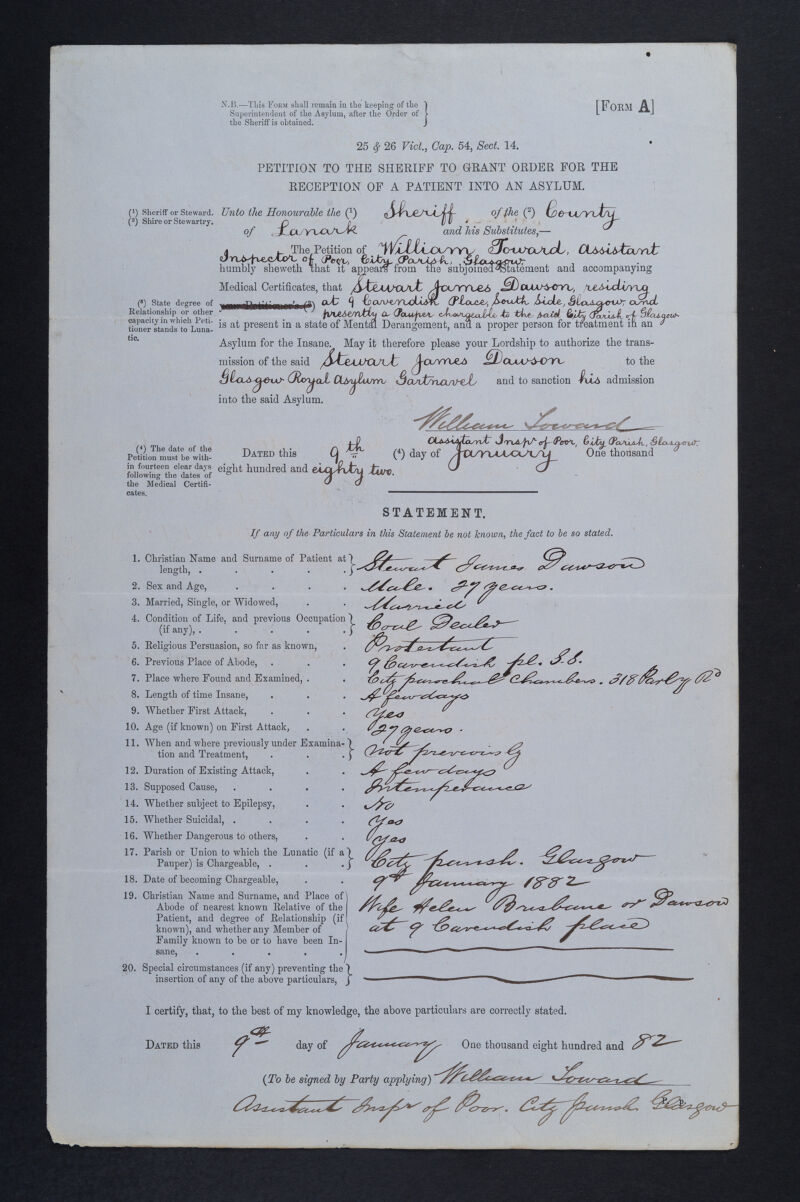 N.B.—This Form shall remain in the keeping of the
Superintendent of the Asylum, after the Order of
the Sheriff is obtained.
[Form A]
25 & 26 Vict., Cap. 54, Sect. 14.
PETITION TO THE SHERIFF TO GRANT ORDER FOR THE
RECEPTION OF A PATIENT INTO AN ASYLUM.
(1) Sheriff or Steward.
(2) Shire or Stewartry.
Unto the Honourable the (1) Sheriff of the (2) County
of Lanark and his Substitutes,—
The Petition of William Toward, Assistant
Inspector of Poor, City Parish, Glasgow
humbly sheweth that it appears from the subjoined Statement and accompanying
Medical Certificates, that Stewart James Dawson, residing
(3) State degree of
Relationship or other
capacity in which Peti-
tioner stands to Luna-
tic.
your Petitioner's (3) at 9 Cavendish Place, South Side, Glasgow, and
presently a Pauper chargeable to the said City Parish of Glasgow
is at present in a state of Mental Derangement, and a proper person for treatment in an
Asylum for the Insane. May it therefore please your Lordship to authorize the trans-
mission of the said Stewart James Dawson to the
Glasgow Royal Asylum Gartnavel and to sanction his admission
into the said Asylum.
William Toward
Assistant Inspr of Poor, City Parish, Glasgow.
(4) The date of the
Petition must be with-
in fourteen clear days
following the dates of
the Medical Certifi-
cates.
Dated this 9th (4) day of January One thousand
eight hundred and eighty two.
STATEMENT.
If any of the Particulars in this Statement be not known, the fact to be so stated.
1. Christian Name and Surname of Patient at
length, . . . . . Stewart James Dawson
2. Sex and Age, . . . . Male. 27 years.
3. Married, Single, or Widowed, . . Married
4. Condition of Life, and previous Occupation
(if any), . . . . . Coal Dealer
5. Religious Persuasion, so far as known, . Protestant
6. Previous Place of Abode, . . . 9 Cavendish pl. S.S.
7. Place where Found and Examined, . . City parochial Chambers. 318 Parly Rd
8. Length of time Insane, . . . A few days
9. Whether First Attack, . . . Yes
10. Age (if known) on First Attack, . . 27 years.
11. When and where previously under Examina-
tion and Treatment, . . . Not previously
12. Duration of Existing Attack, . . A few days
13. Supposed Cause, . . . . Intemperance
14. Whether subject to Epilepsy, . . No
15. Whether Suicidal, . . . . Yes
16. Whether Dangerous to others, . . Yes
17. Parish or Union to which the Lunatic (if a
Pauper) is Chargeable, . . . City parish. Glasgow
18. Date of becoming Chargeable, . . 9th January 1882
19. Christian Name and Surname, and Place of
Abode of nearest known Relative of the
Patient, and degree of Relationship (if
known), and whether any Member of
Family known to be or to have been In-
sane, . . . . .
Wife Helen Brisbane or Dawson
at 9 Cavendish place
20. Special circumstances (if any) preventing the
insertion of any of the above particulars,
I certify, that, to the best of my knowledge, the above particulars are correctly stated.
Dated this 9th day of January One thousand eight hundred and 82
(To be signed by Party applying) William Toward
Assistant Inspr of Poor. City parish Glasgow